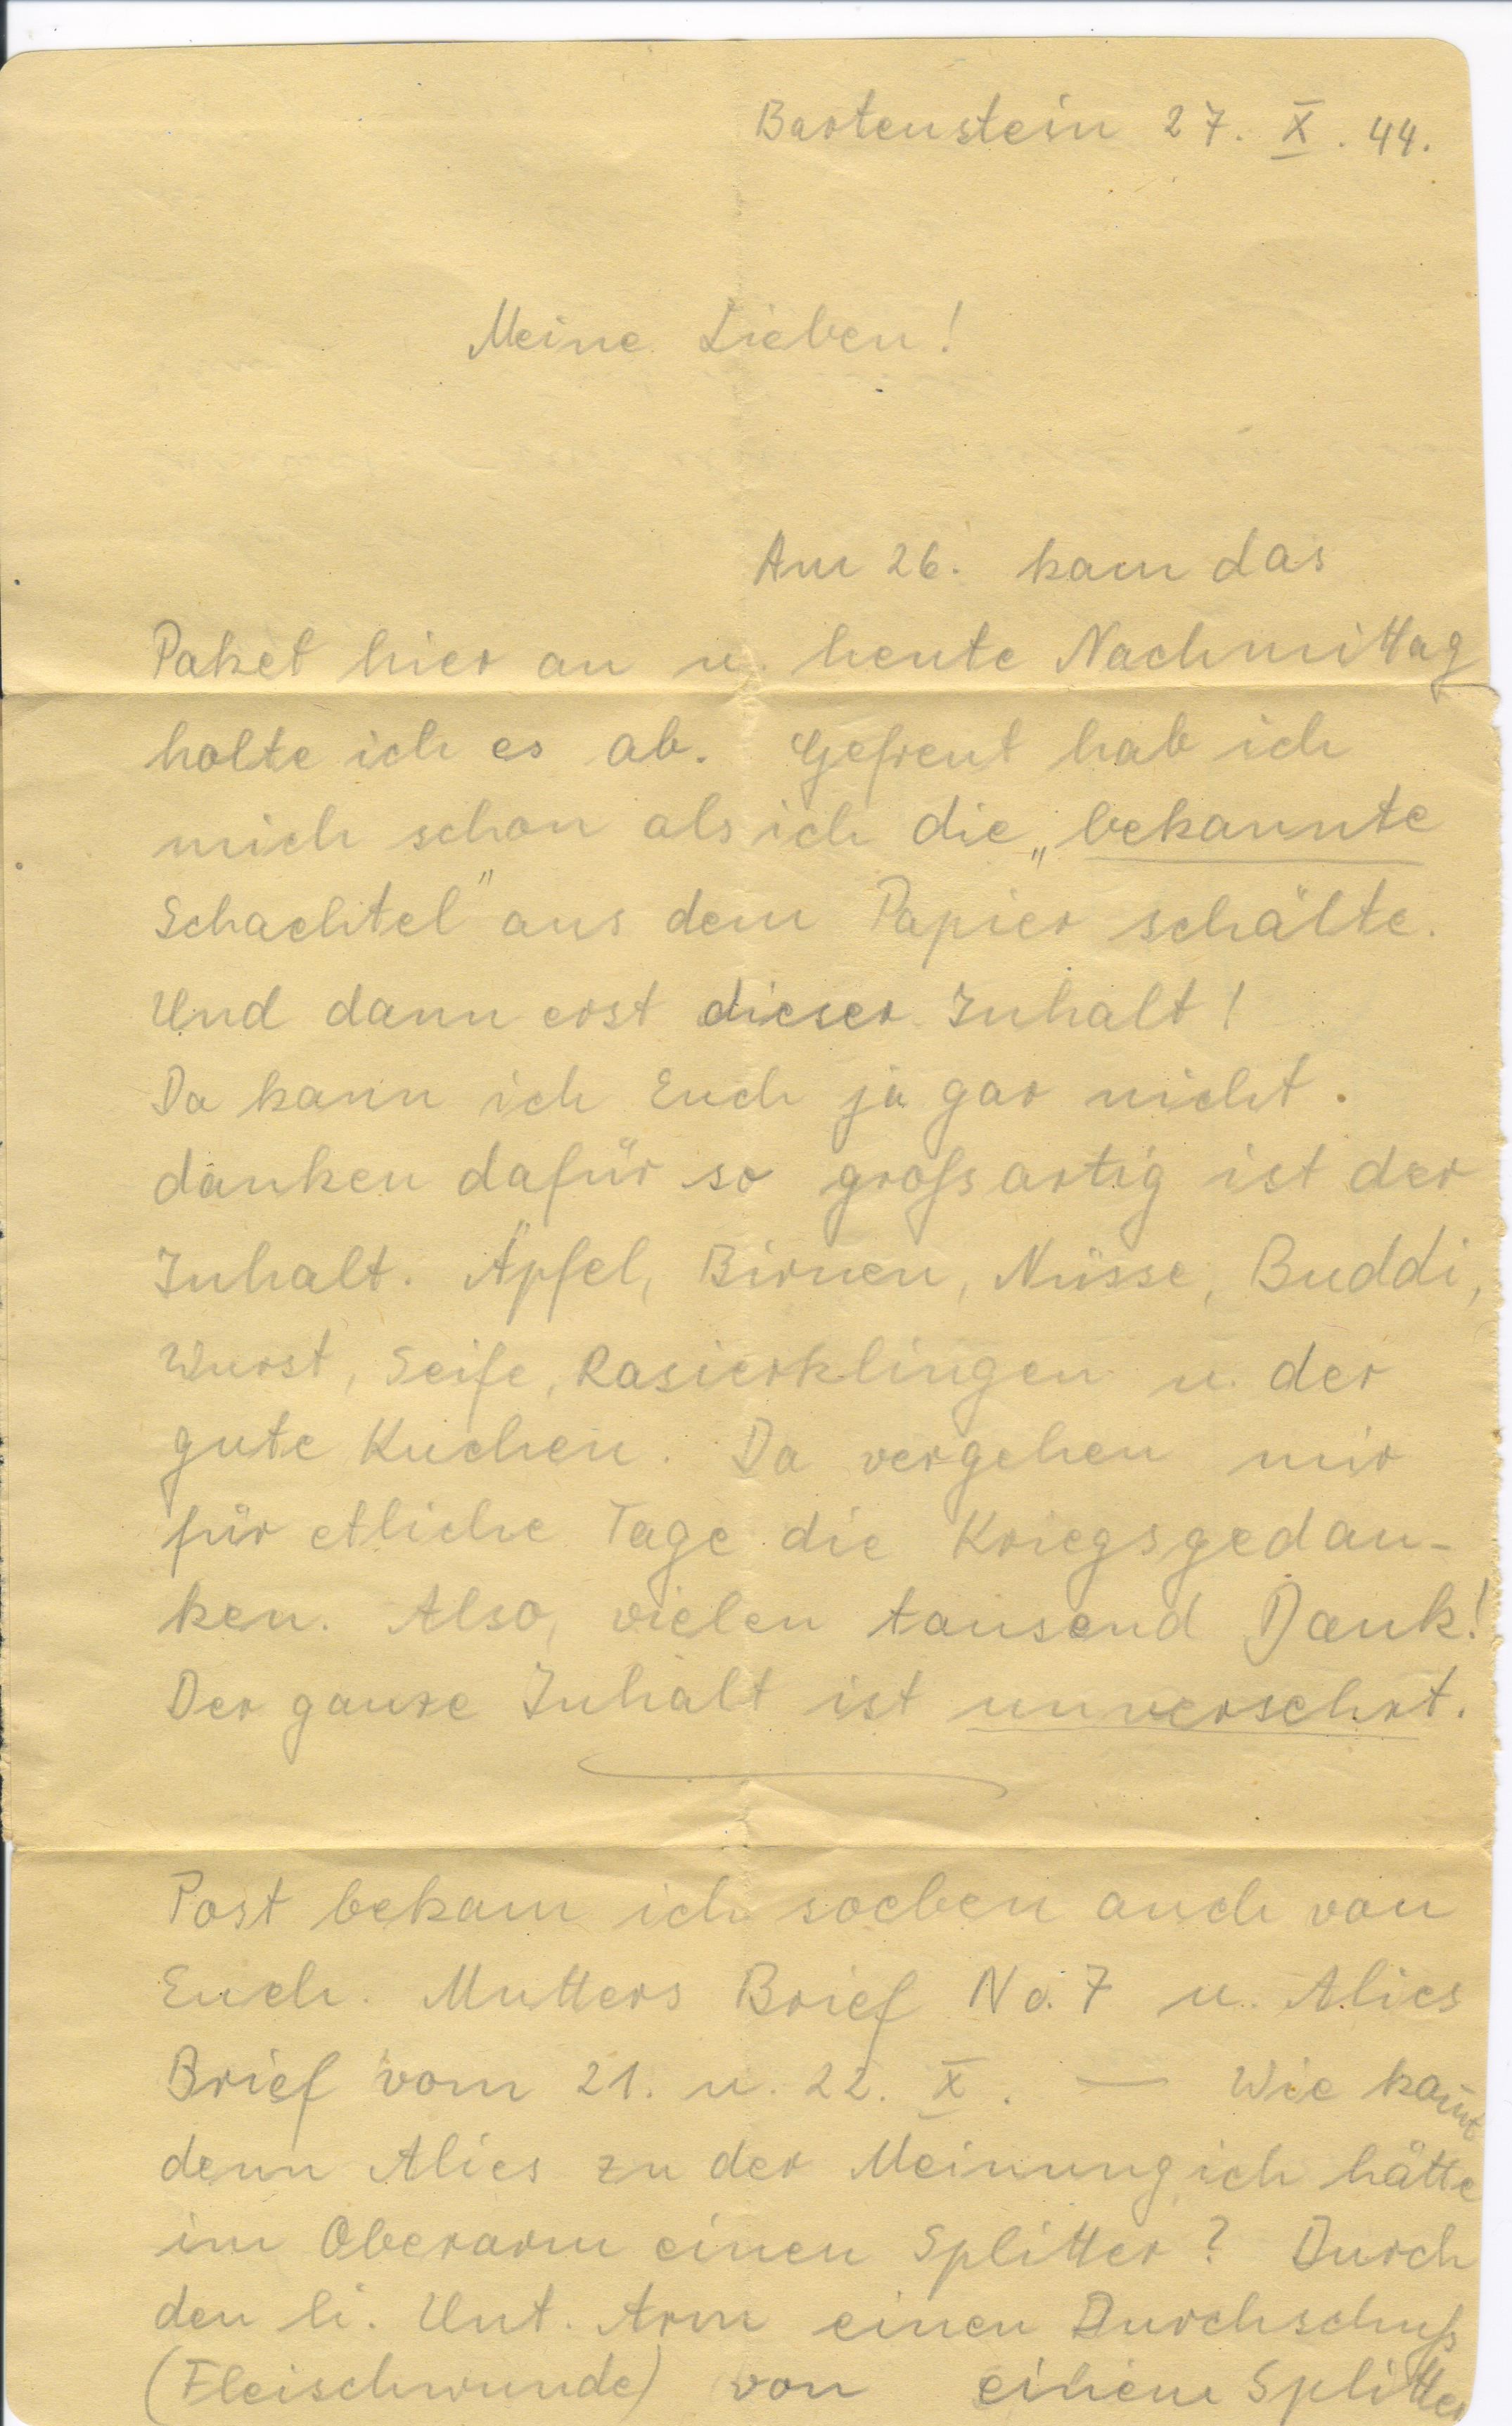 Bartenstein 27. X. 44.
Meine Lieben!
Am 26. kam das
Paket hier an u. heute Nachmittag
holte ich es ab. Gefreut hab ich
mich schon als ich die „bekannte
Schachtel" aus dem Papier schälte.
Und dann erst dieser Inhalt!
Da kann ich Euch ja gar nicht.
danken dafür so großartig ist der
Inhalt. Äpfel, Birnen, Nüsse, Buddi,
Wurst, Seife, Rasierklingen u. der
gute Kuchen. Da vergehen mir
für etliche Tage die Kriegsgedan-
ken. Also, vielen tausend Dank!
Der ganze Inhalt ist unversehrt.
Post bekam ich soeben auch von
Euch. Mutters Brief No. 7 u. Alies
Brief vom 21. u. 22. X. — Wie kom̄t
denn Alies zu der Meinung ich hätte
im Oberarm einen Splitter? Durch
den li. Unt. Arm einen Durchschuß
(Fleischwunde) von einem Splitter